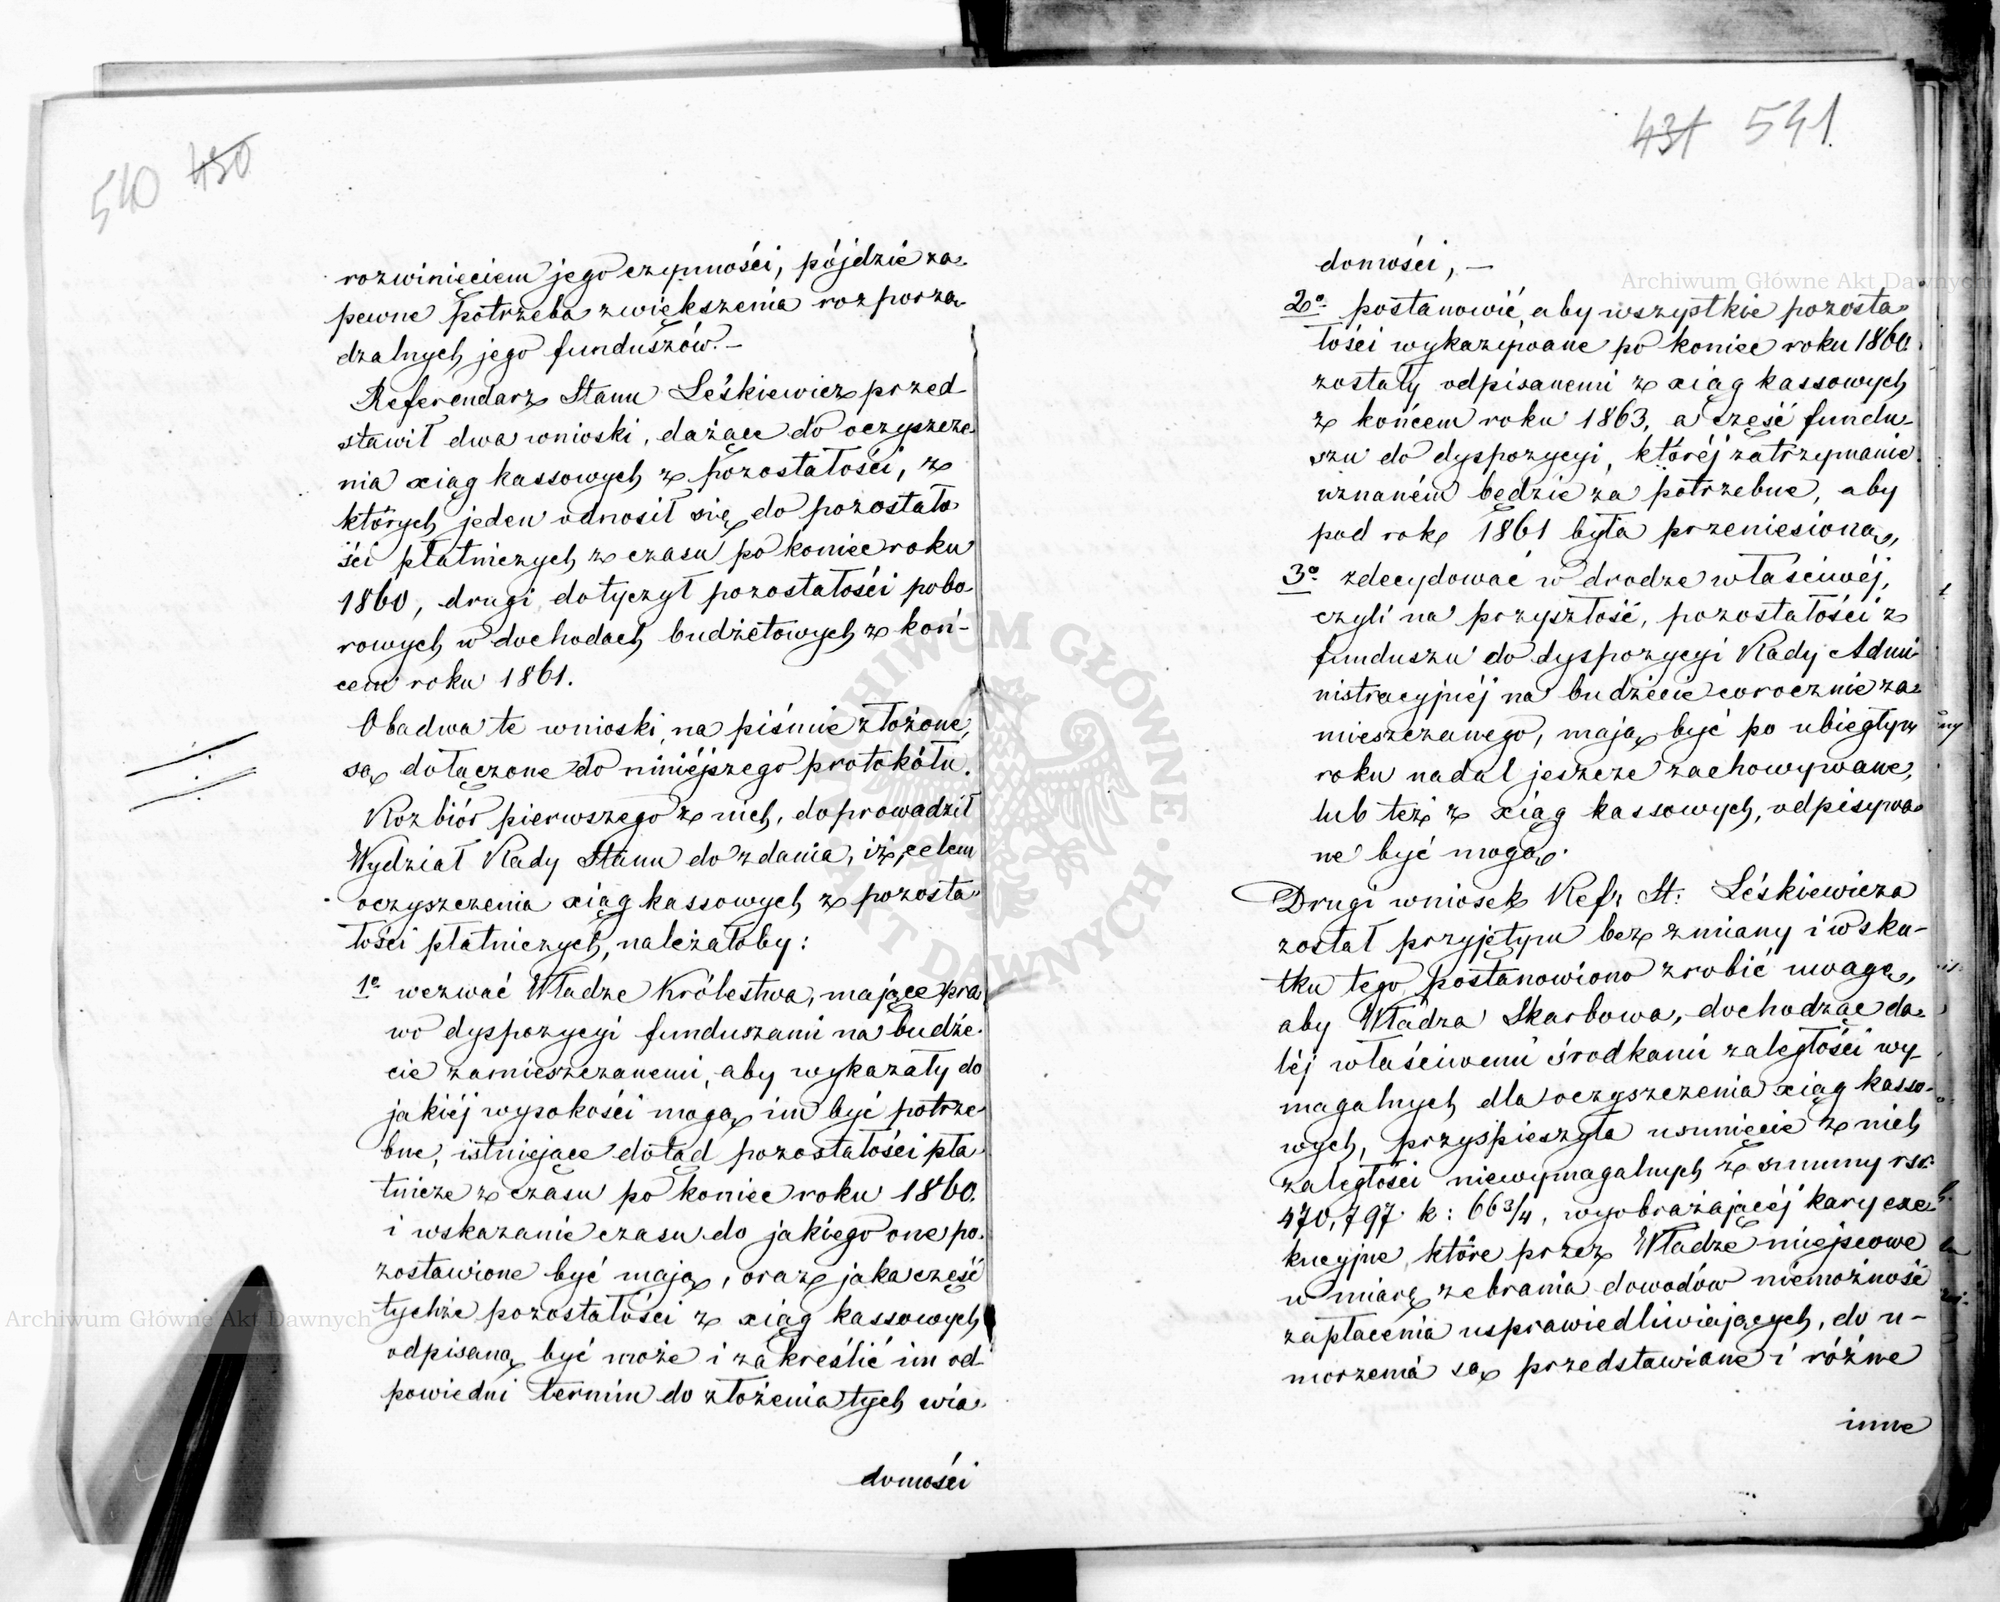 540 430
rozwinięciem jego czynności, pójdzie za-
pewne potrzeba zwiększenia rozporzą-
dzalnych jego funduszów. –
Referendarz Stanu Leśkiewicz przed-
stawił dwa wnioski, dążące do oczyszcze-
nia xiąg kassowych z pozostałości, z
których jeden odnosił się do pozostało-
ści płatniczych z czasu po koniec roku
1860, drugi dotyczył pozostałości pobo-
rowych w dochodach budżetowych z koń-
cem roku 1861.
Obadwa te wnioski, na piśmie złożone,
są dołączone do niniéjszego protokółu.
Rozbiór pierwszego z nich, doprowadził
Wydział Rady Stanu do zdania, iż, celem
oczyszczenia xiąg kassowych z pozosta-
łości płatniczych, należałoby:
1º wezwać Władze Królestwa, mające pra
wo dyspozycyi funduszami na budże-
cie zamieszczanemi, aby wykazały do
jakiéj wysokości mogą im być potrze-
bne, istniejące dotąd pozostałości pła-
tnicze z czasu po koniec roku 1860.
i wskazanie czasu do jakiego one po-
zostawione być mają, oraz jaka część
tychże pozostałości z xiąg kassowych
odpisaną być może i zakreślić im od-
powiedni termin do złożenia tych wia-
domości
431 541.
domości, –
2º postanowić, aby wszystkie pozosta-
łości wykazywane po koniec roku 1860.
zostały odpisanemi z xiąg kassowych
z końcem roku 1863, a część fundu-
szu do dyspozycyi, któréj zatrzymanie
uznaném będzie za potrzebne, aby
pod rok 1861 była przeniesioną,
3º zdecydować w drodze właściwéj,
czyli na przyszłość, pozostałości z
funduszu do dyspozycyi Rady Admi-
nistracyjnéj na budżecie corocznie za-
mieszczanego, mają być po ubiegłym
roku nadal jeszcze zachowywane,
lub też z xiąg kassowych, odpisywa-
ne być mogą.
Drugi wniosek Ref: St: Leśkiewicza
został przyjętym bez zmiany i w sku-
tku tego postanowiono zrobić uwagę,
aby Władza Skarbowa, dochodząc da-
léj właściwemi środkami zaległości wy
magalnych dla oczyszczenia xiąg kasso-
wych, przyśpieszyła usunięcie z nich
zaległości niewymagalnych z summy rsr.
470,797 k: 66 3/4, wyobrażającéj kary exe-
kucyjne, które przez Władze miejscowe
w miarę zebrania dowodów niemożność
zapłacenia usprawiedliwiających, do u-
morzenia są przedstawiane i różne
inne
Archiwum Główne Akt Dawnych
Archiwum Główne Akt Dawnych
ARCHIWUM GŁÓWNE AKT DAWNYCH